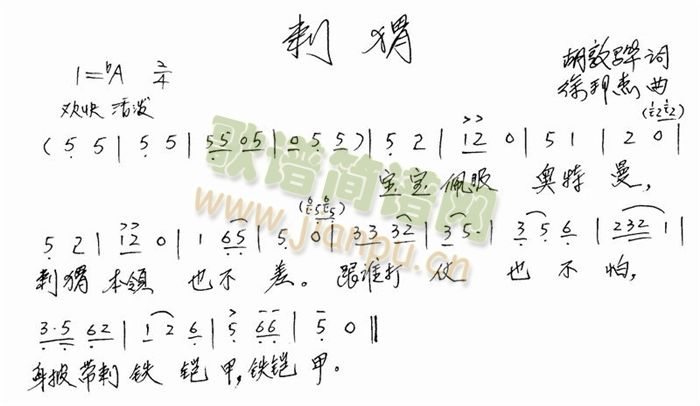 刺猬
1=♭A 2/4
胡敦骅 词
徐邦杰 曲
欢快 活泼
( 5 5 | 5 5 | 5 5 0 5 | 0 5 5 ) | 5 2 | 1 2 0 | 5 1 | 2 0 |
宝宝佩服 奥特曼,
5 2 | 1 2 0 | 1 6 5 | 5 0 | 3 3 3 2 | 3 5· | 3 5 6 | 2 3 2 1 |
刺猬本领 也不差。跟谁打仗 也不怕,
3·5 6 2 | 1 2 6 | 5 6 6 | 5 0 ‖
身披带刺铁铠甲,铁铠甲。
歌谱简谱网
www.jianpu.cn